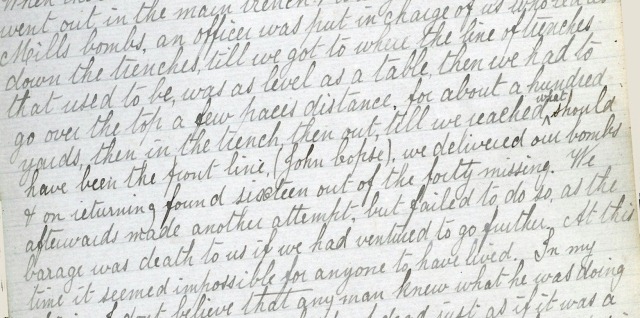 When
went out in the main trench,
Mills bombs, an officer was put in charge of us
down the trenches, till we got to where the line of trenches
that used to be, was as level as a table, then we had to
go over the top a few paces distance, for about a hundred
yards, then in the trench, then out, till we reached what should
have been the front line, (John bopse), we delivered our bombs
& on returning found sixteen out of the forty missing. We
afterwards made another attempt, but failed to do so, as the
barage was death to us if we had ventured to go further. At this
time it seemed impossible for anyone to have lived. In my
I dont believe that any man knew what he was doing
dead just as if it was a